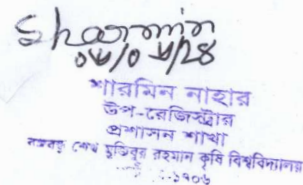 Sharmin
০৮/০৮/২৪
শারমিন নাহার
উপ-রেজিস্ট্রার
প্রশাসন শাখা
বঙ্গবন্ধু শেখ মুজিবুর রহমান কৃষি বিশ্ববিদ্যালয়
১৭০৬